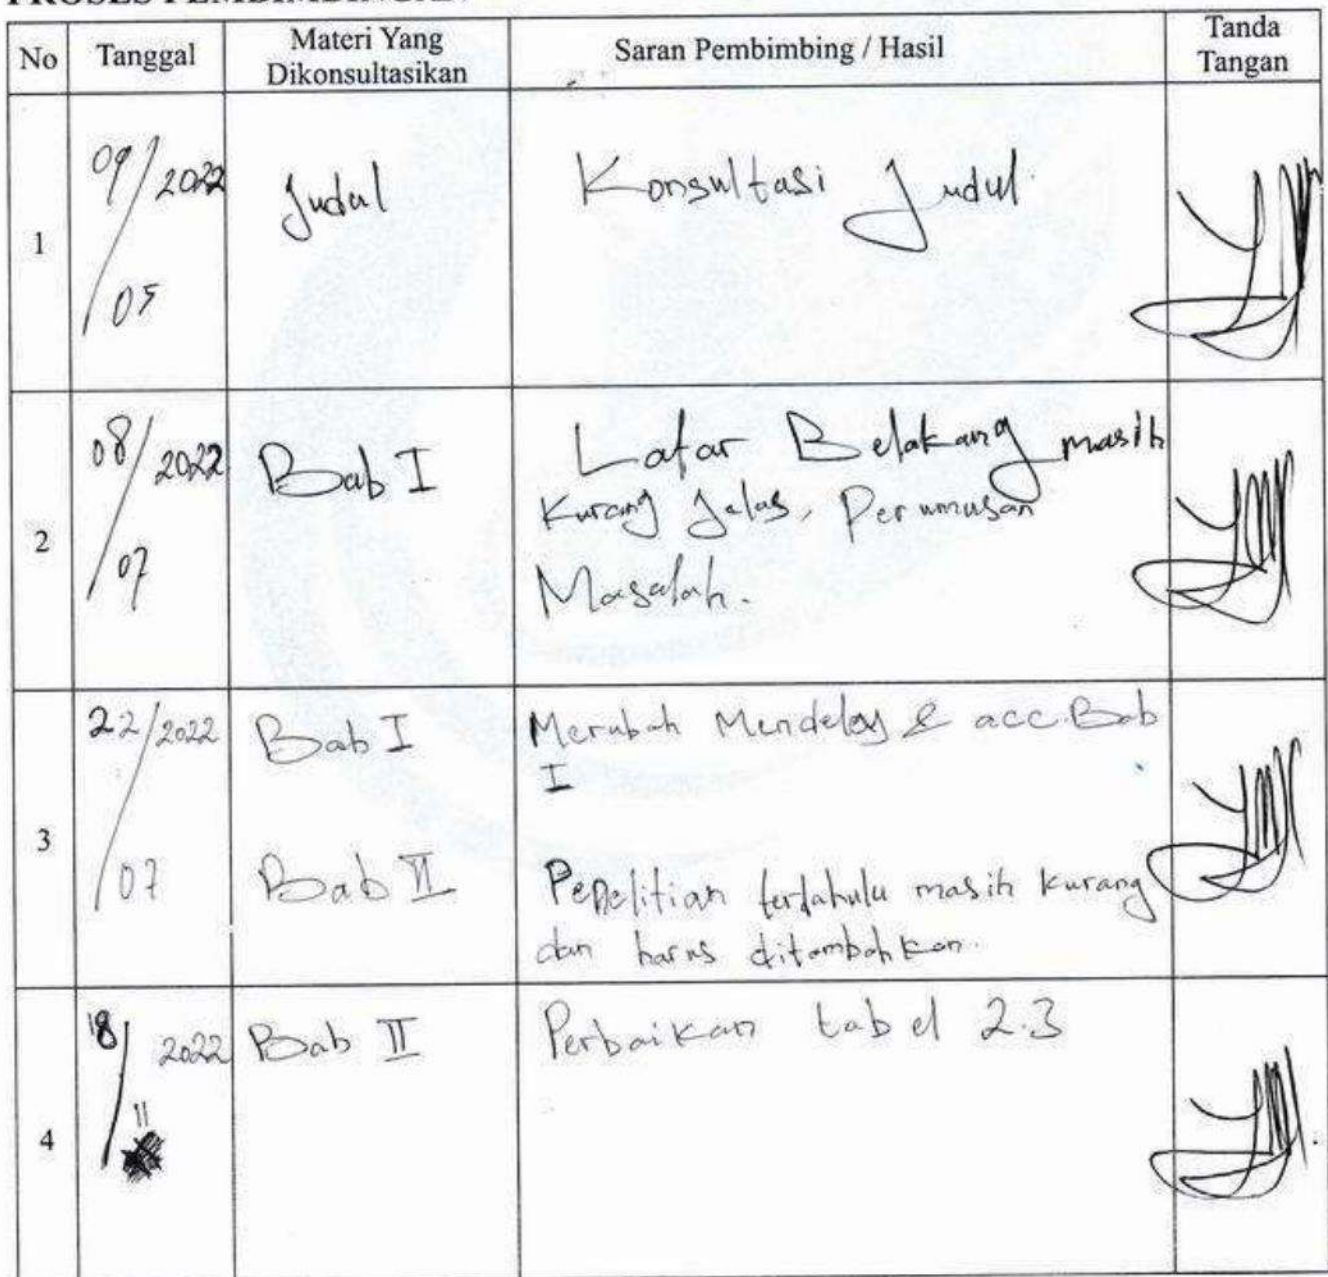 PROSES PEMBIMBINGAN
No Tanggal Materi Yang Dikonsultasikan Saran Pembimbing / Hasil Tanda Tangan
1 09/05 2022 Judul Konsultasi Judul
2 08/07 2022 Bab I Latar Belakang masih
Kurang Jelas, Perumusan
Masalah.
3 22/07 2022 Bab I Merubah Mendeley & acc Bab
I
Bab II Penelitian terdahulu masih kurang
dan harus ditambahkan.
4 18/11 2022 Bab II Perbaikan tabel 2.3